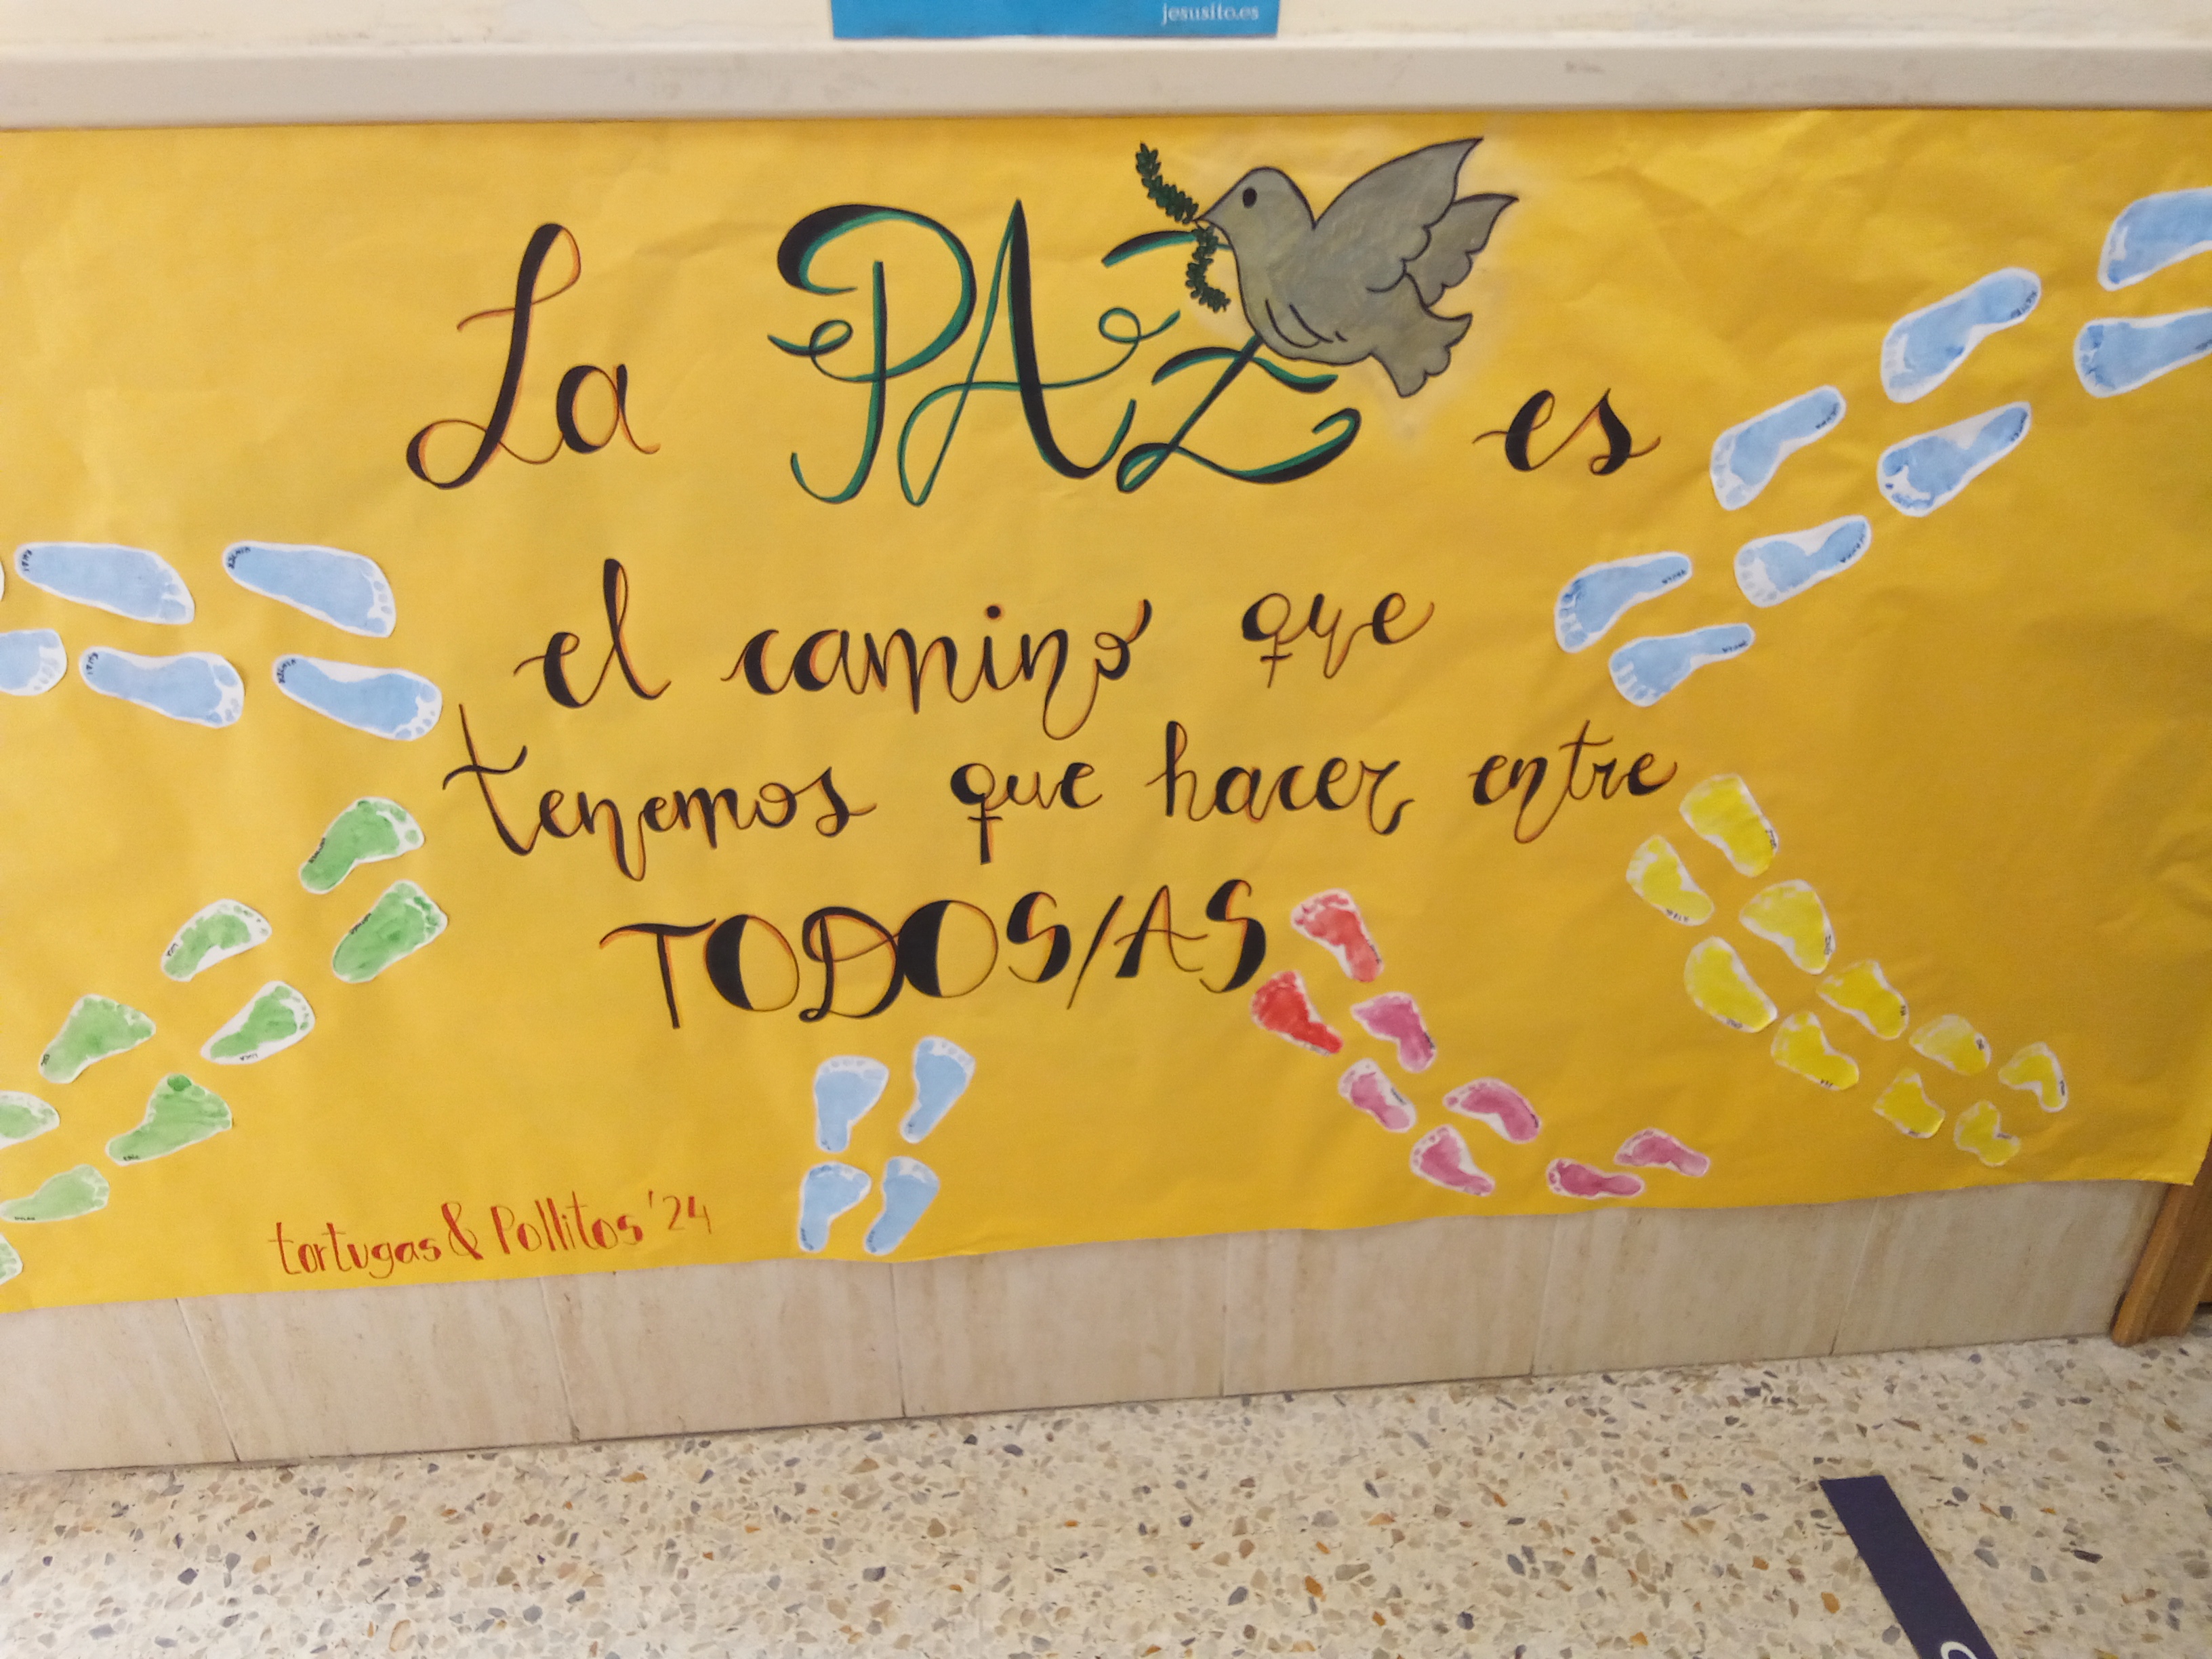 jesusito.es
La PAZ es
el camino que
tenemos que hacer entre
TODOS/AS
tortugas & Pollitos '24
LUCA